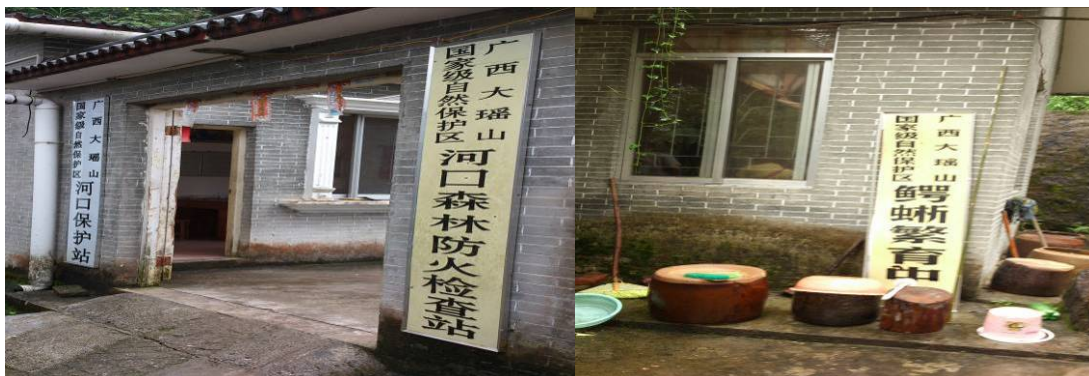 广西大瑶山
国家级自然保护区
河口保护站
广西大瑶山
国家级自然保护区
河口森林防火检查站
广西大瑶山
国家级自然保护区
鳄蜥繁育中